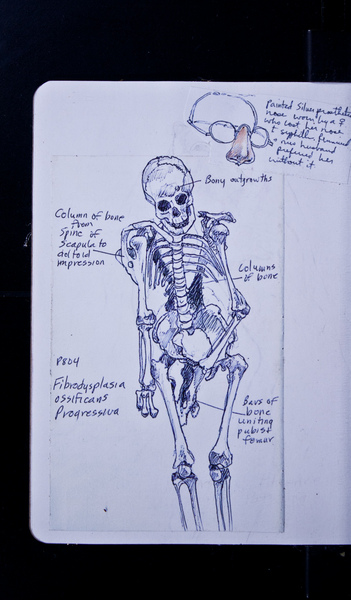 Painted Silver prosthetic
nose worn by a ♀
who lost her nose
t syphilis. Remarried
& new husband
preferred her
without it.
Bony outgrowths
Column of bone
from
Spine of
Scapula to
deltoid
impression
Columns
of bone
P804
Fibrodysplasia
ossificans
Progressiva
Bars of
bone
uniting
pubis &
femur